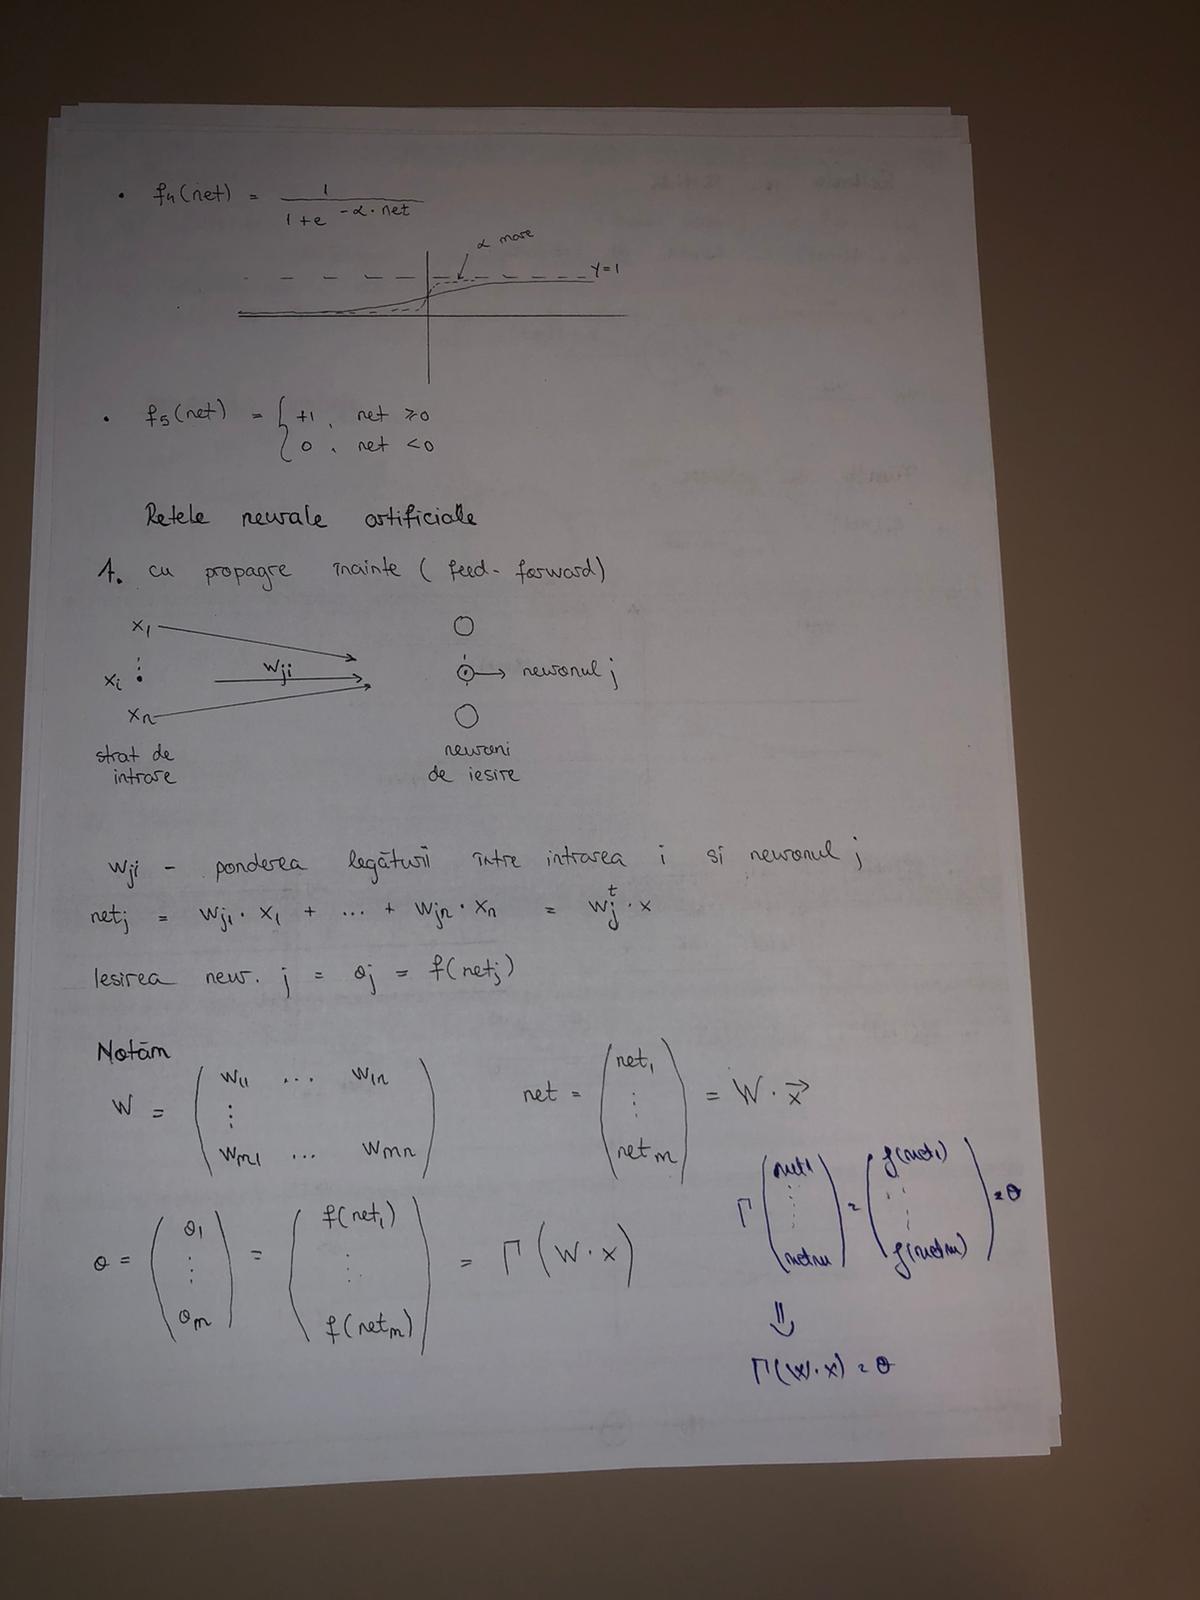 • f₄(net) = 1 / (1 + e^(-α·net))
α mare
y=1
• f₅(net) = { +1, net ≥0
0, net <0
Retele neurale artificiale
1. cu propagre înainte ( feed-forward)
x₁
xᵢ wji → neuronul j
xₙ
strat de neuroni
intrare de iesire
wji - ponderea legăturii între intrarea i si neuronul j
netj = wj₁ · x₁ + ... + wjn · xn = wjᵗ · x
Iesirea neur. j = θj = f(netj)
Notăm
W = ( w₁₁ ... w₁n ⋮ wm1 ... wmn ) net = ( net₁ ⋮ netm ) = W · x⃗
θ = ( θ₁ ⋮ θm ) = ( f(net₁) ⋮ f(netm) ) = Γ (W · x)
Γ ( net1 ⋮ netm ) = ( f(net1) ⋮ f(netm) ) = θ
⇓
Γ(W·x) = θ